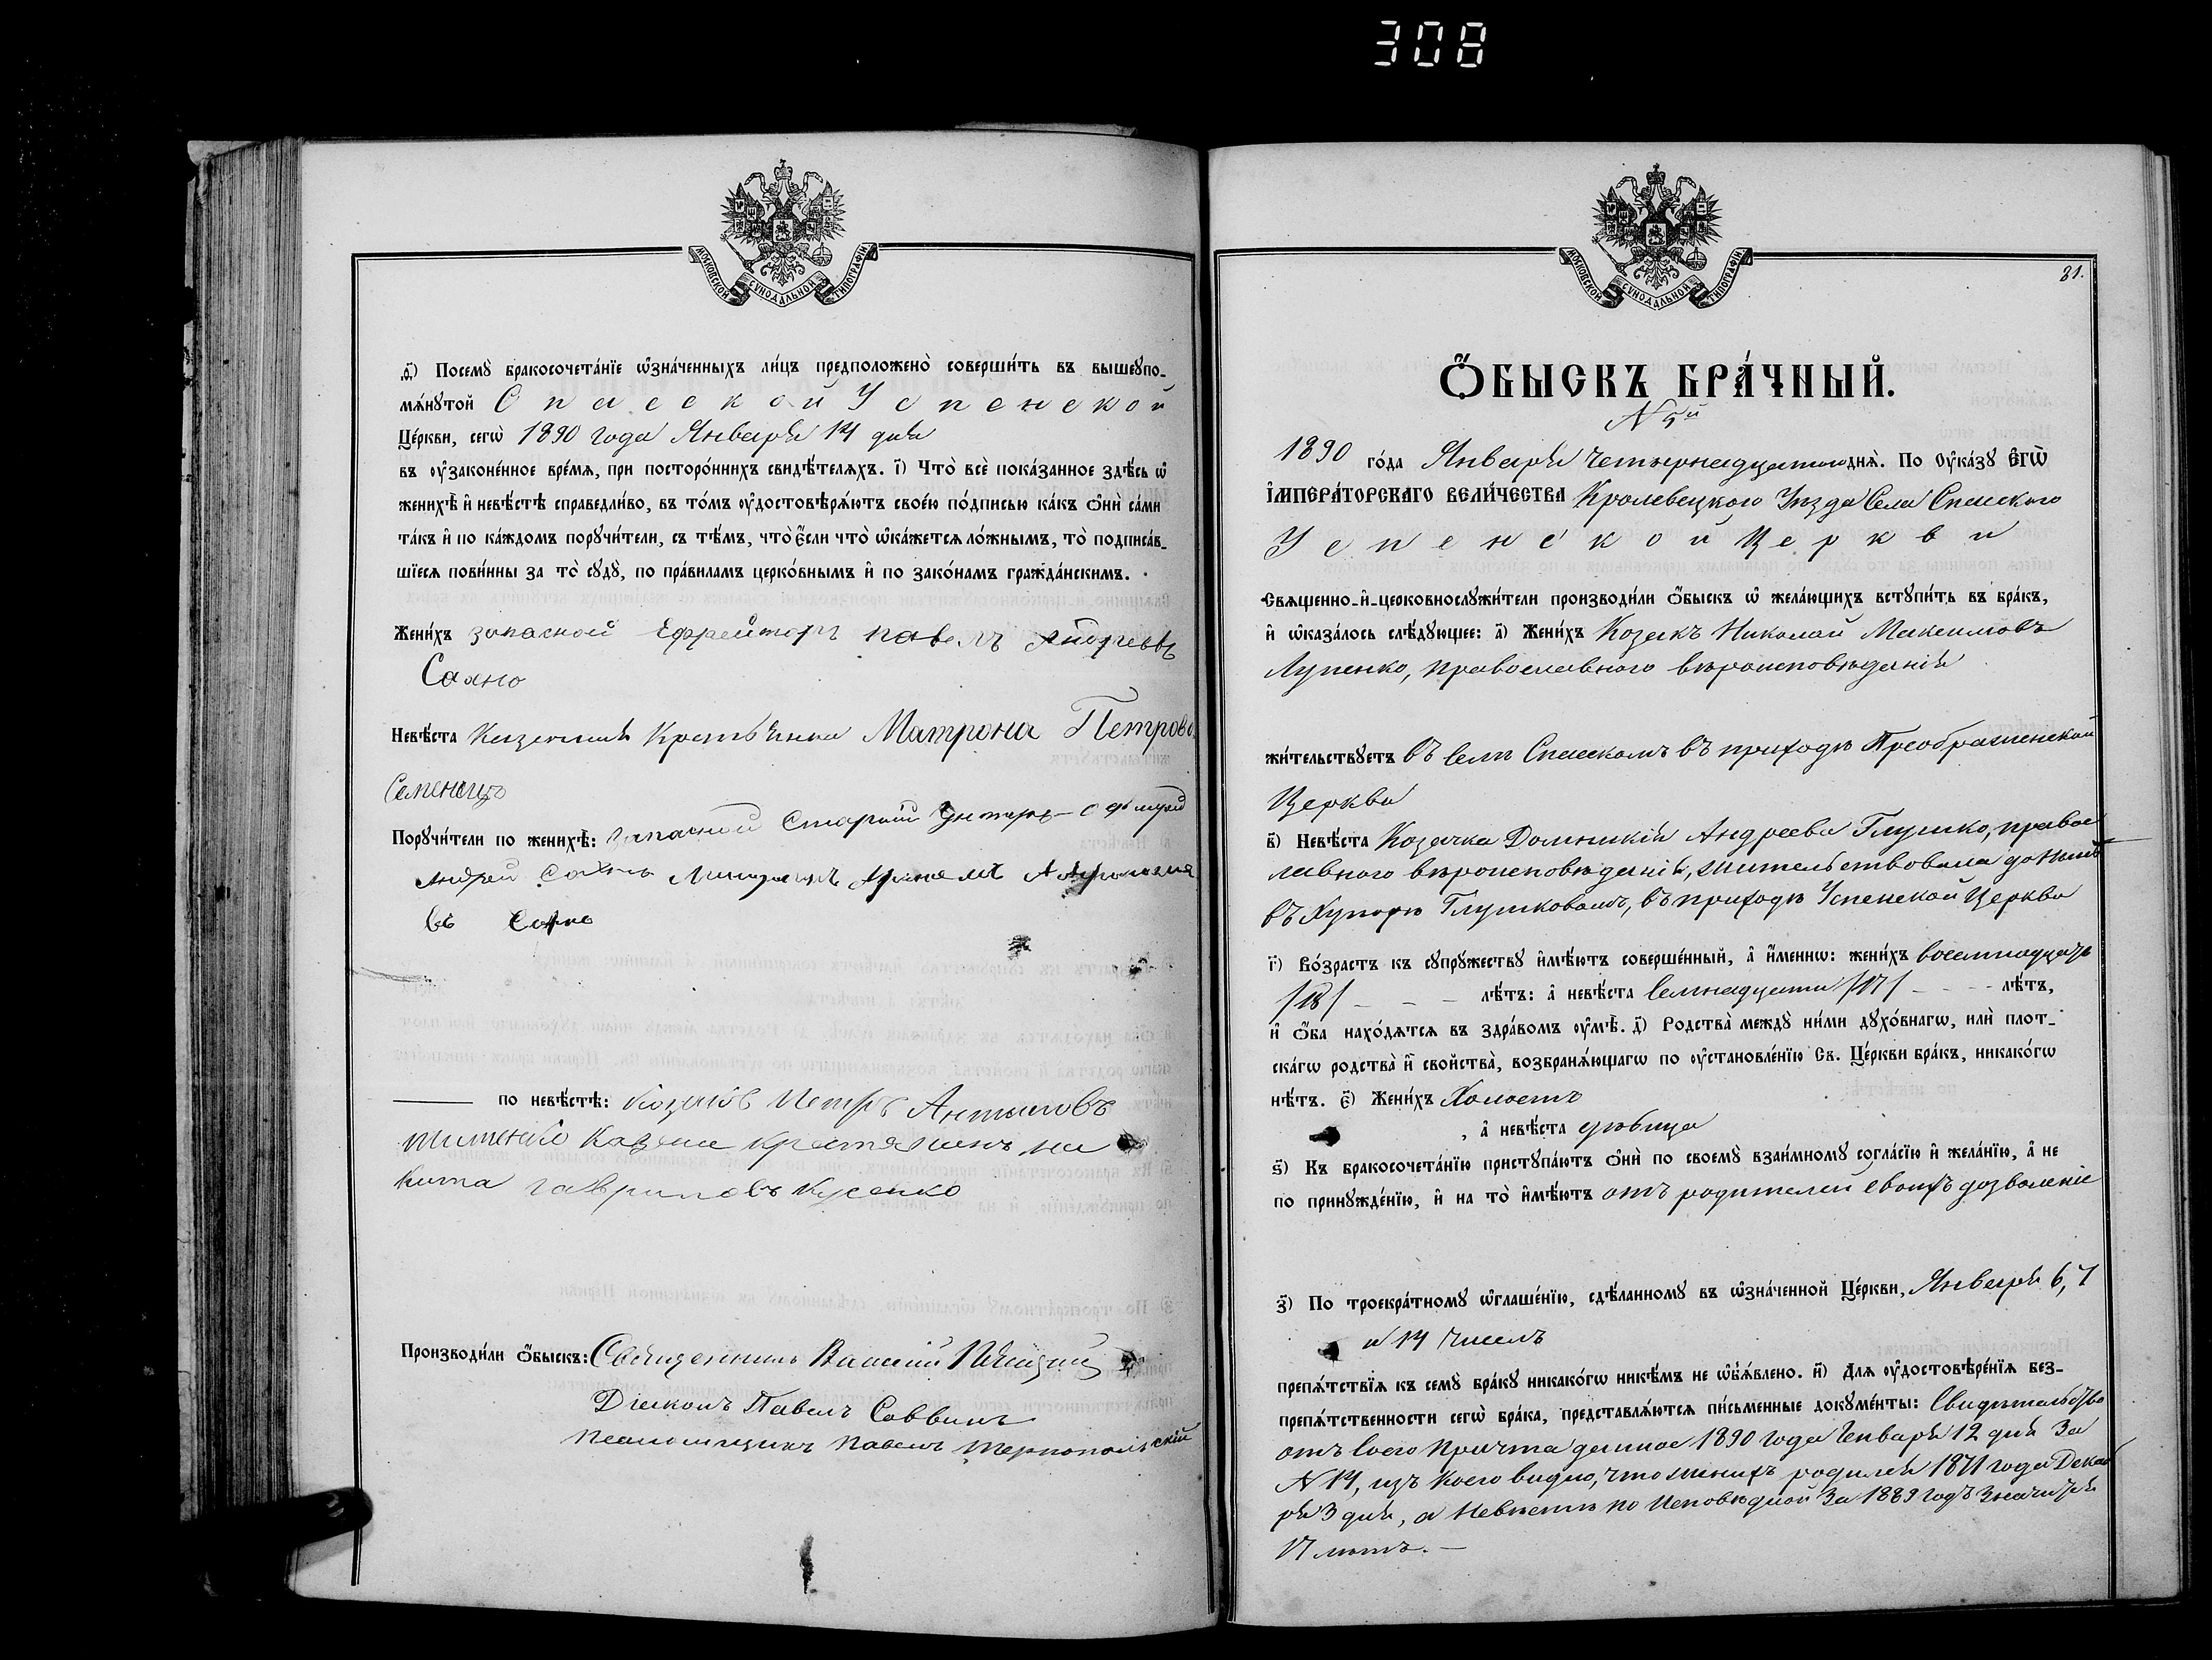 308
МОСКОВСКОЙ СѴНОДАЛЬНОЙ ТИПОГРАФІИ
д҃) Посемꙋ̀ бракосочета́нїе ѡ҆зна́ченныхъ ли́цъ предположено̀ соверши́ть въ вышеꙋпо-
мѧ́нꙋтой Спасской Успенской
Це́ркви, сегѡ̀ 1890 года Января 14 дня
въ ᲂу҆законе́нное вре́мѧ, при посторо́ннихъ свидѣ́телѧхъ. і҃) Что̀ всѐ пока́занное здѣ́сь ѡ҆
женихѣ̀ и҆ невѣ́стѣ справедли́во, въ то́мъ ᲂу҆достовѣрѧ́ютъ свое́ю по́дписью ка́къ ѻ҆нѝ са́ми
та́къ и҆ по ка́ждомъ порꙋчи́тели, съ тѣ́мъ, что̀ є҆́сли что̀ ѡ҆ка́жетсѧ ло́жнымъ, то̀ подписа́в-
шїесѧ пови́нны за то̀ сꙋдꙋ̀, по пра́виламъ церко́внымъ и҆ по зако́намъ гражда́нскимъ.
Жени́хъ запасной Ефрейторъ павелъ Андреевъ
Сахно
Невѣ́ста Казенная Крестьянка Матрона Петрова
Семенцо
Порꙋчи́тели по женихѣ̀: запасной Старшій Унтеръ-Офицеръ
Андрей Сахно
въ Сахно
по невѣ́стѣ: Козакъ Петръ Антиповъ
Казенны крестянинъ ни
кита гавриловъ Кусенко
Производи́ли ѻ҆́быскъ: Священникъ Василій
Діаконъ Павелъ Саввинъ
Псаломщикъ Павелъ Тернопольскій
МОСКОВСКОЙ СѴНОДАЛЬНОЙ ТИПОГРАФІИ
31.
Ѻ҆́БЫСКЪ БРА́ЧНЫЙ.
N 5й
1890 го́да Января четырнадцатого днѧ̀. По ᲂу҆ка́зꙋ Є҆ГѠ̀
І҆МПЕРА́ТОРСКАГО ВЕЛИ́ЧЕСТВА Кролевецкого Уѣзда Села Спасского
Успенской Церкви
Свѧщенно-и҆-церковнослꙋжи́тели производи́ли ѻ҆́быскъ ѡ҆ жела́ющихъ встꙋпи́ть въ бра́къ,
и҆ ѡ҆каза́лось слѣ́дꙋющее: а҃) Жени́хъ Козакъ Николай Максимовъ
Лупенко, православного вѣроисповѣданія
жи́тельствꙋетъ въ селѣ Спасскомъ въ приходѣ Преображенской
Церкви
в҃) Невѣ́ста Козачка Домникія Андреева Глушко, правос
лавного вѣроисповѣданія, жительствовала донынѣ
въ Хуторѣ Глушковомъ, въ приходѣ Успенской Церкви
г҃) Во́зрастъ къ сꙋпрꙋ́жествꙋ и҆мѣ́ютъ соверше́нный, а҆ и҆́меннѡ: жени́хъ восемнадцать
/18/ - - - лѣ́тъ: а҆ невѣ́ста семнадцати /17/ - - - лѣ́тъ,
и҆ ѻ҆́ба нахо́дѧтсѧ въ здра́вомъ ᲂу҆мѣ̀. д҃) Родства̀ междꙋ̀ ни́ми дꙋхо́внагѡ, илѝ плот-
ска́гѡ родства̀ и҆ свойства̀, возбранѧ́ющагѡ по ᲂу҆становле́нїю Св. Це́ркви бра́къ, никако́гѡ
нѣ́тъ. є҃) Жени́хъ Холостъ
, а҆ невѣ́ста дѣвица
ѕ҃) Къ бракосочета́нїю пристꙋпа́ютъ ѻ҆нѝ по своемꙋ̀ взаи́мномꙋ согла́сїю и҆ жела́нїю, а҆ не
по принꙋжде́нїю, и҆ на то̀ и҆мѣ́ютъ отъ родителей своихъ дозволеніе
з҃) По троекра́тномꙋ ѡ҆глаше́нїю, сдѣ́ланномꙋ въ ѡ҆зна́ченной Це́ркви, Января 6, 7
и 14 чиселъ
препѧ́тствїѧ къ семꙋ̀ бра́кꙋ никако́гѡ никѣ́мъ не ѡ҆б̾ѧ́влено. и҃) Для ᲂу҆достовѣре́нїѧ без-
препѧ́тственности сегѡ̀ бра́ка, представлѧ́ютсѧ пи́сьменные докꙋме́нты: Свидѣтельство
отъ Сего Причта данное 1890 года Генваря 12 дня За
N 14, изъ коего видно, что женихъ родился 1871 года Декаб
ря 3 дня, а Невѣстѣ по Исповѣдной За 1889 годъ Значится
17 лѣтъ. —